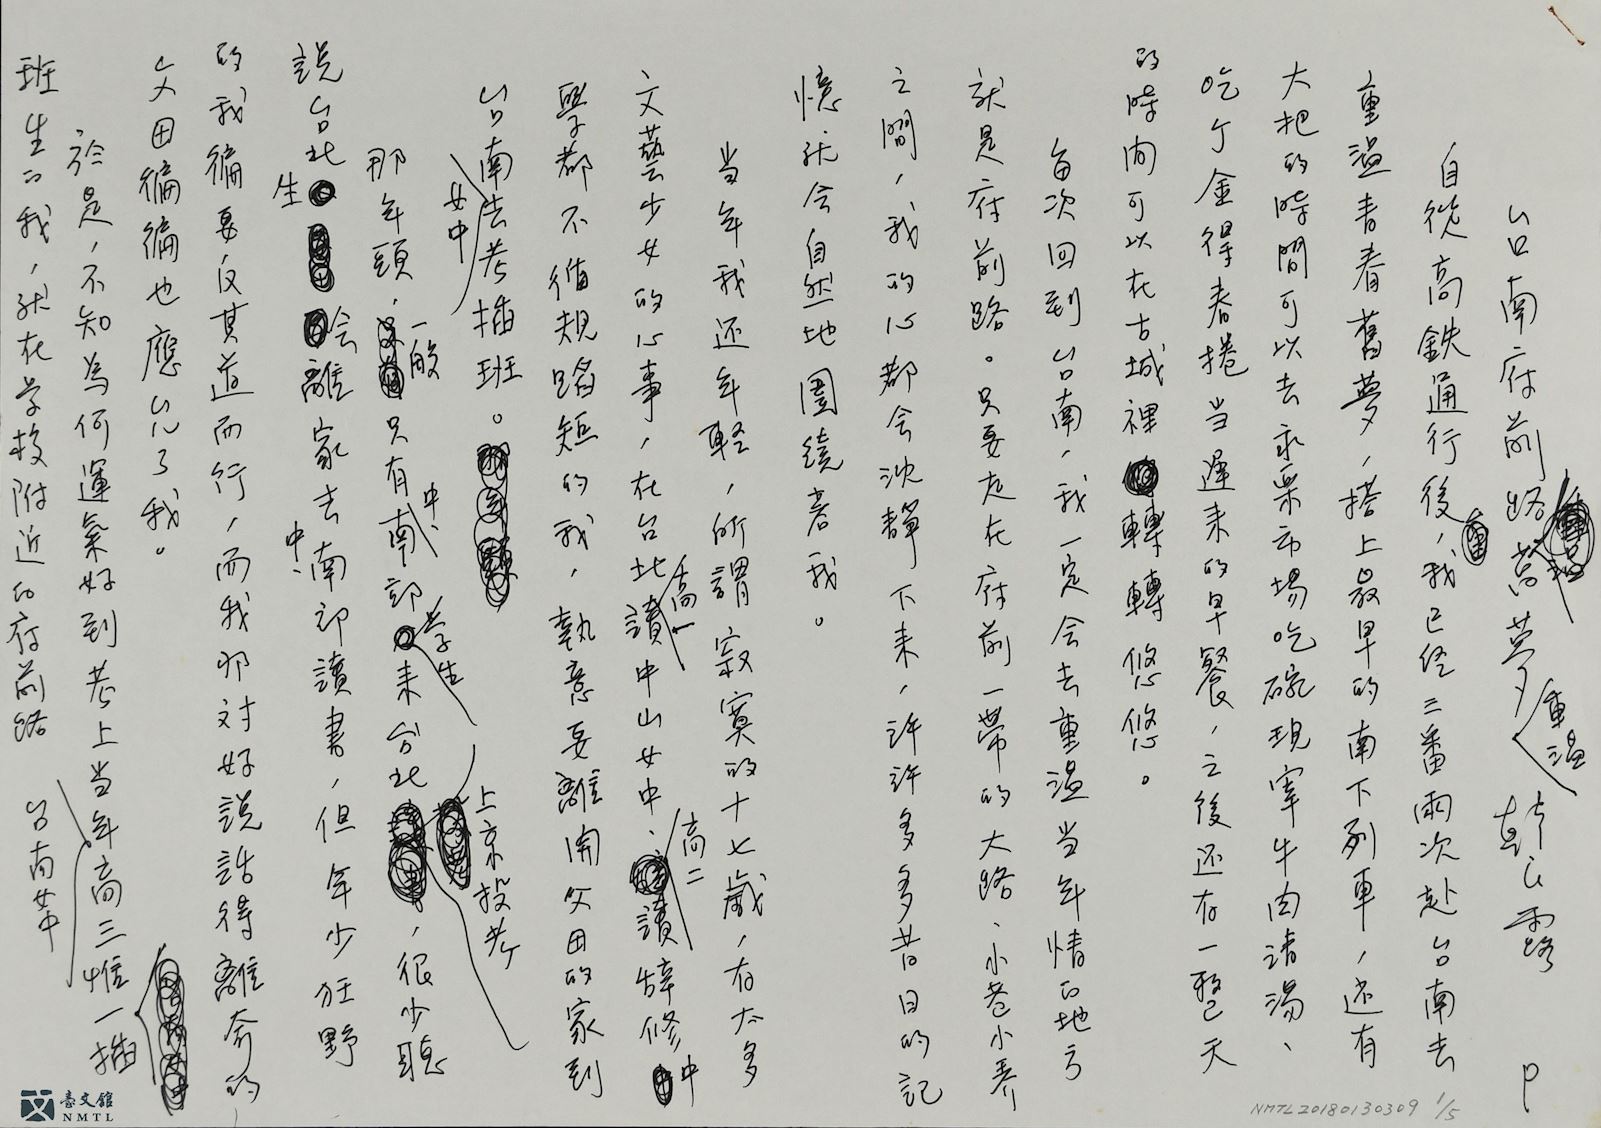 台南府前路舊夢重溫 韓良露 P
自從高鐵通行後，我已經三番兩次赴台南去
重溫青春舊夢，搭上最早的南下列車，還有
大把的時間可以去永樂市場吃碗現宰牛肉清湯、
吃个金得春捲当遲来的早餐，之後还有一整天
的時间可以在古城裡轉轉悠悠。
每次回到台南，我一定会去重溫当年情的地方
就是府前路。只要走在府前一帶的大路、小巷小弄
之間，我的心都会沈靜下来，許許多多昔日的記
憶就会自然地圍繞著我。
当年我还年輕，所謂寂寞的十七歲，有太多
文藝少女的心事，在台北讀高一中山女中、高二讀辭修高中
學都不循規蹈矩的我，執意要離開父田的家到
台南去考女中插班。
那年頭，一般只有中、南部学生来台北上京投考，很少聽
說台北生会離家去中、南部讀書，但年少狂野
的我偏要反其道而行，而我那対好說話得離奇的
父田偏偏也應允了我。
於是，不知為何運氣好到考上当年高三惟一插
班生的我，就在学校台南女中附近的府前路
臺文館
NMTL
NMTL20180130309 1/5